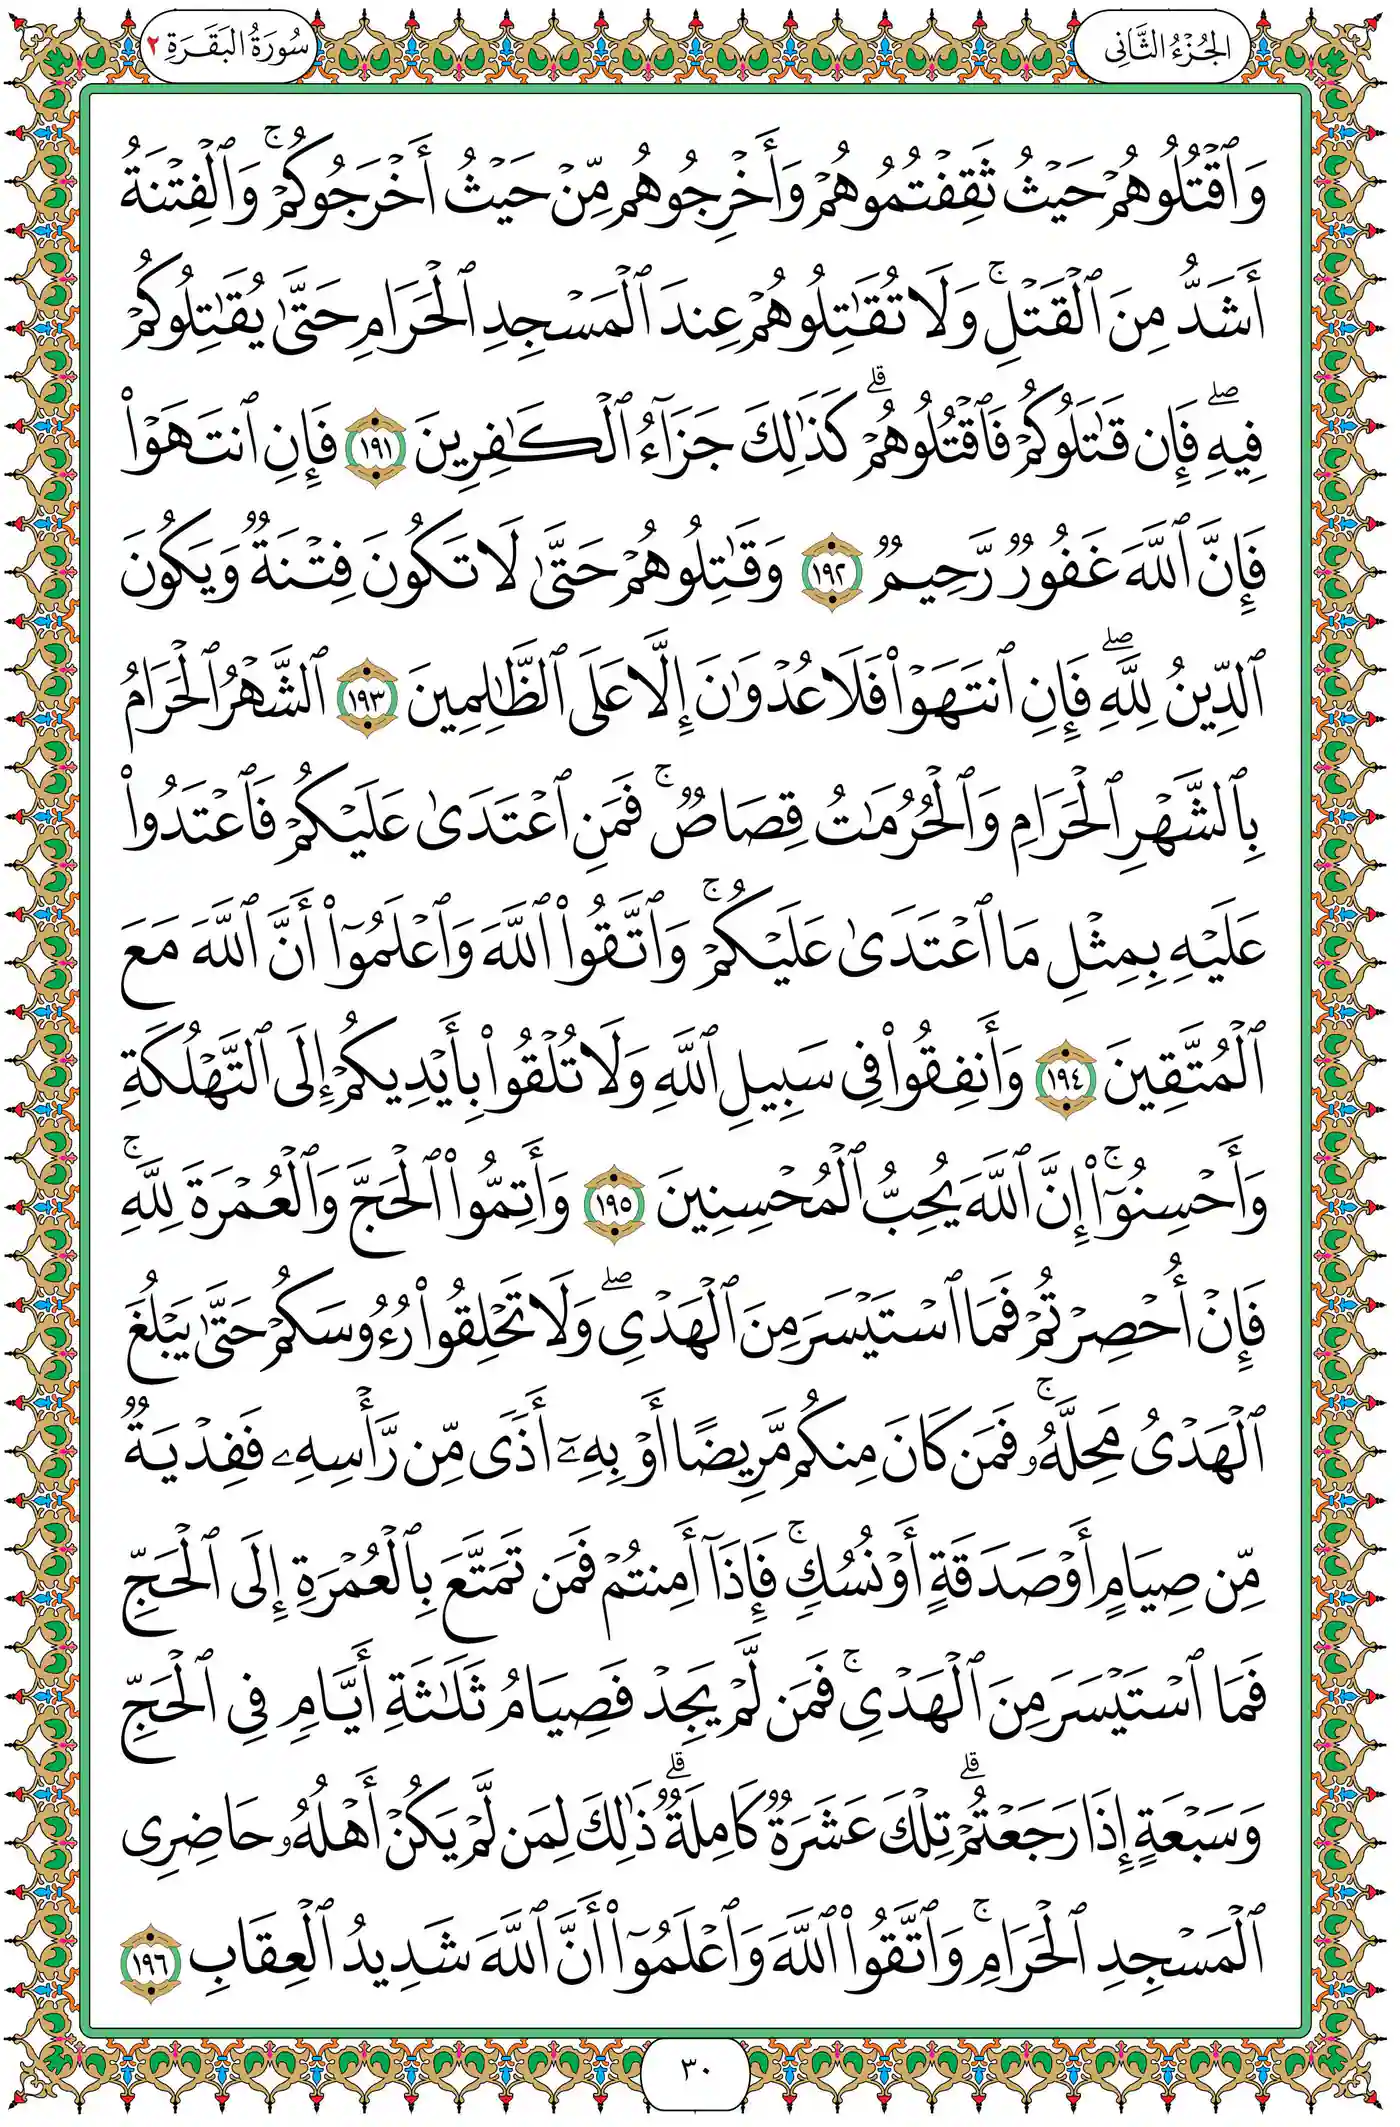 الجُزْءُ الثَّانِي
سُورَةُ البَقَرَةِ ٢
وَٱقْتُلُوهُمْ حَيْثُ ثَقِفْتُمُوهُمْ وَأَخْرِجُوهُم مِّنْ حَيْثُ أَخْرَجُوكُمْ ۚ وَٱلْفِتْنَةُ
أَشَدُّ مِنَ ٱلْقَتْلِ ۚ وَلَا تُقَٰتِلُوهُمْ عِندَ ٱلْمَسْجِدِ ٱلْحَرَامِ حَتَّىٰ يُقَٰتِلُوكُمْ
فِيهِ ۖ فَإِن قَٰتَلُوكُمْ فَٱقْتُلُوهُمْ ۗ كَذَٰلِكَ جَزَآءُ ٱلْكَٰفِرِينَ ١٩١ فَإِنِ ٱنتَهَوْا۟
فَإِنَّ ٱللَّهَ غَفُورٌ رَّحِيمٌ ١٩٢ وَقَٰتِلُوهُمْ حَتَّىٰ لَا تَكُونَ فِتْنَةٌ وَيَكُونَ
ٱلدِّينُ لِلَّهِ ۖ فَإِنِ ٱنتَهَوْا۟ فَلَا عُدْوَٰنَ إِلَّا عَلَى ٱلظَّٰلِمِينَ ١٩٣ ٱلشَّهْرُ ٱلْحَرَامُ
بِٱلشَّهْرِ ٱلْحَرَامِ وَٱلْحُرُمَٰتُ قِصَاصٌ ۚ فَمَنِ ٱعْتَدَىٰ عَلَيْكُمْ فَٱعْتَدُوا۟
عَلَيْهِ بِمِثْلِ مَا ٱعْتَدَىٰ عَلَيْكُمْ ۚ وَٱتَّقُوا۟ ٱللَّهَ وَٱعْلَمُوٓا۟ أَنَّ ٱللَّهَ مَعَ
ٱلْمُتَّقِينَ ١٩٤ وَأَنفِقُوا۟ فِى سَبِيلِ ٱللَّهِ وَلَا تُلْقُوا۟ بِأَيْدِيكُمْ إِلَى ٱلتَّهْلُكَةِ
وَأَحْسِنُوٓا۟ ۚ إِنَّ ٱللَّهَ يُحِبُّ ٱلْمُحْسِنِينَ ١٩٥ وَأَتِمُّوا۟ ٱلْحَجَّ وَٱلْعُمْرَةَ لِلَّهِ ۚ
فَإِنْ أُحْصِرْتُمْ فَمَا ٱسْتَيْسَرَ مِنَ ٱلْهَدْىِ ۖ وَلَا تَحْلِقُوا۟ رُءُوسَكُمْ حَتَّىٰ يَبْلُغَ
ٱلْهَدْىُ مَحِلَّهُۥ ۚ فَمَن كَانَ مِنكُم مَّرِيضًا أَوْ بِهِۦٓ أَذًى مِّن رَّأْسِهِۦ فَفِدْيَةٌ
مِّن صِيَامٍ أَوْ صَدَقَةٍ أَوْ نُسُكٍ ۚ فَإِذَآ أَمِنتُمْ فَمَن تَمَتَّعَ بِٱلْعُمْرَةِ إِلَى ٱلْحَجِّ
فَمَا ٱسْتَيْسَرَ مِنَ ٱلْهَدْىِ ۚ فَمَن لَّمْ يَجِدْ فَصِيَامُ ثَلَٰثَةِ أَيَّامٍ فِى ٱلْحَجِّ
وَسَبْعَةٍ إِذَا رَجَعْتُمْ ۗ تِلْكَ عَشَرَةٌ كَامِلَةٌ ۗ ذَٰلِكَ لِمَن لَّمْ يَكُنْ أَهْلُهُۥ حَاضِرِى
ٱلْمَسْجِدِ ٱلْحَرَامِ ۚ وَٱتَّقُوا۟ ٱللَّهَ وَٱعْلَمُوٓا۟ أَنَّ ٱللَّهَ شَدِيدُ ٱلْعِقَابِ ١٩٦
٣٠